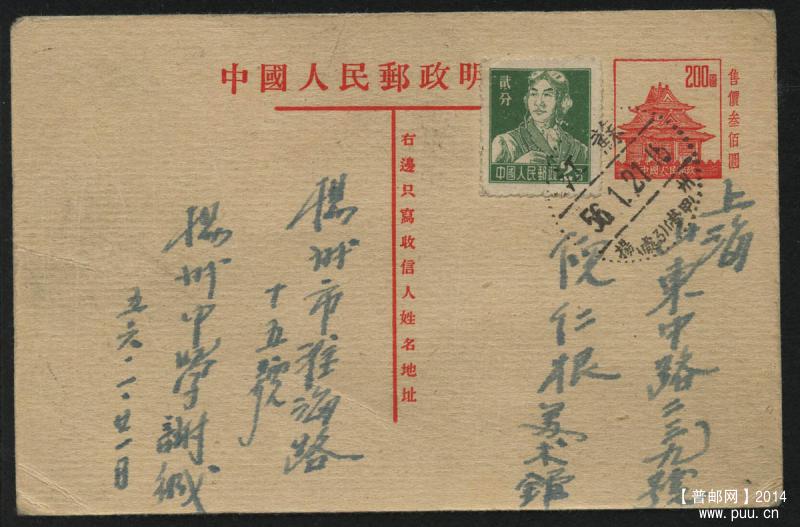 中國人民郵政明
200圓
售價叁佰圓
中國人民郵政
貳分
中國人民郵政 2分
江蘇
56.1.21.15
揚州
右邊只寫收信人姓名地址
上海
山東中路二三九號
倪仁根
揚州市淮海路
十五號
揚州中學謝緘
五六.一.廿一日
【普邮网】2014
www.puu.cn